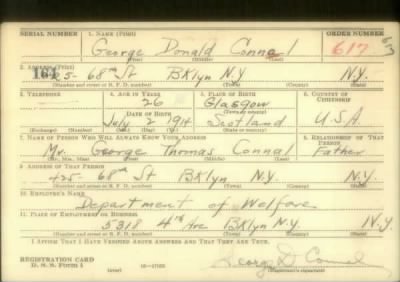 SERIAL NUMBER 1. NAME (Print) ORDER NUMBER
George Donald Connal 617
(First) (Middle) (Last)
2. ADDRESS (Print)
164
425- 68th St BKlyn N.Y. N.Y.
(Number and street or R. F. D. number) (Town) (County) (State)
3. TELEPHONE 4. AGE IN YEARS 5. PLACE OF BIRTH 6. COUNTRY OF CITIZENSHIP
26 Glasgow
DATE OF BIRTH (Town or county)
July 2 1914 Scotland U.S.A.
(Exchange) (Number) (Mo.) (Day) (Yr.) (State or country)
7. NAME OF PERSON WHO WILL ALWAYS KNOW YOUR ADDRESS 8. RELATIONSHIP OF THAT PERSON
Mr. George Thomas Connal Father
(Mr., Mrs., Miss) (First) (Middle) (Last)
9. ADDRESS OF THAT PERSON
425- 68th St BKlyn N.Y. N.Y.
(Number and street or R. F. D. number) (Town) (County) (State)
10. EMPLOYER'S NAME
Department of Welfare
11. PLACE OF EMPLOYMENT OR BUSINESS
5318 4th Ave BKlyn N.Y. N.Y.
(Number and street or R. F. D. number) (Town) (County) (State)
I AFFIRM THAT I HAVE VERIFIED ABOVE ANSWERS AND THAT THEY ARE TRUE.
REGISTRATION CARD
D. S. S. Form 1 (over) George D Connal
(Registrant's signature)